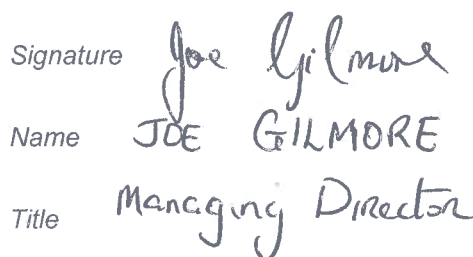 Signature Joe Gilmore
Name JOE GILMORE
Title Managing Director